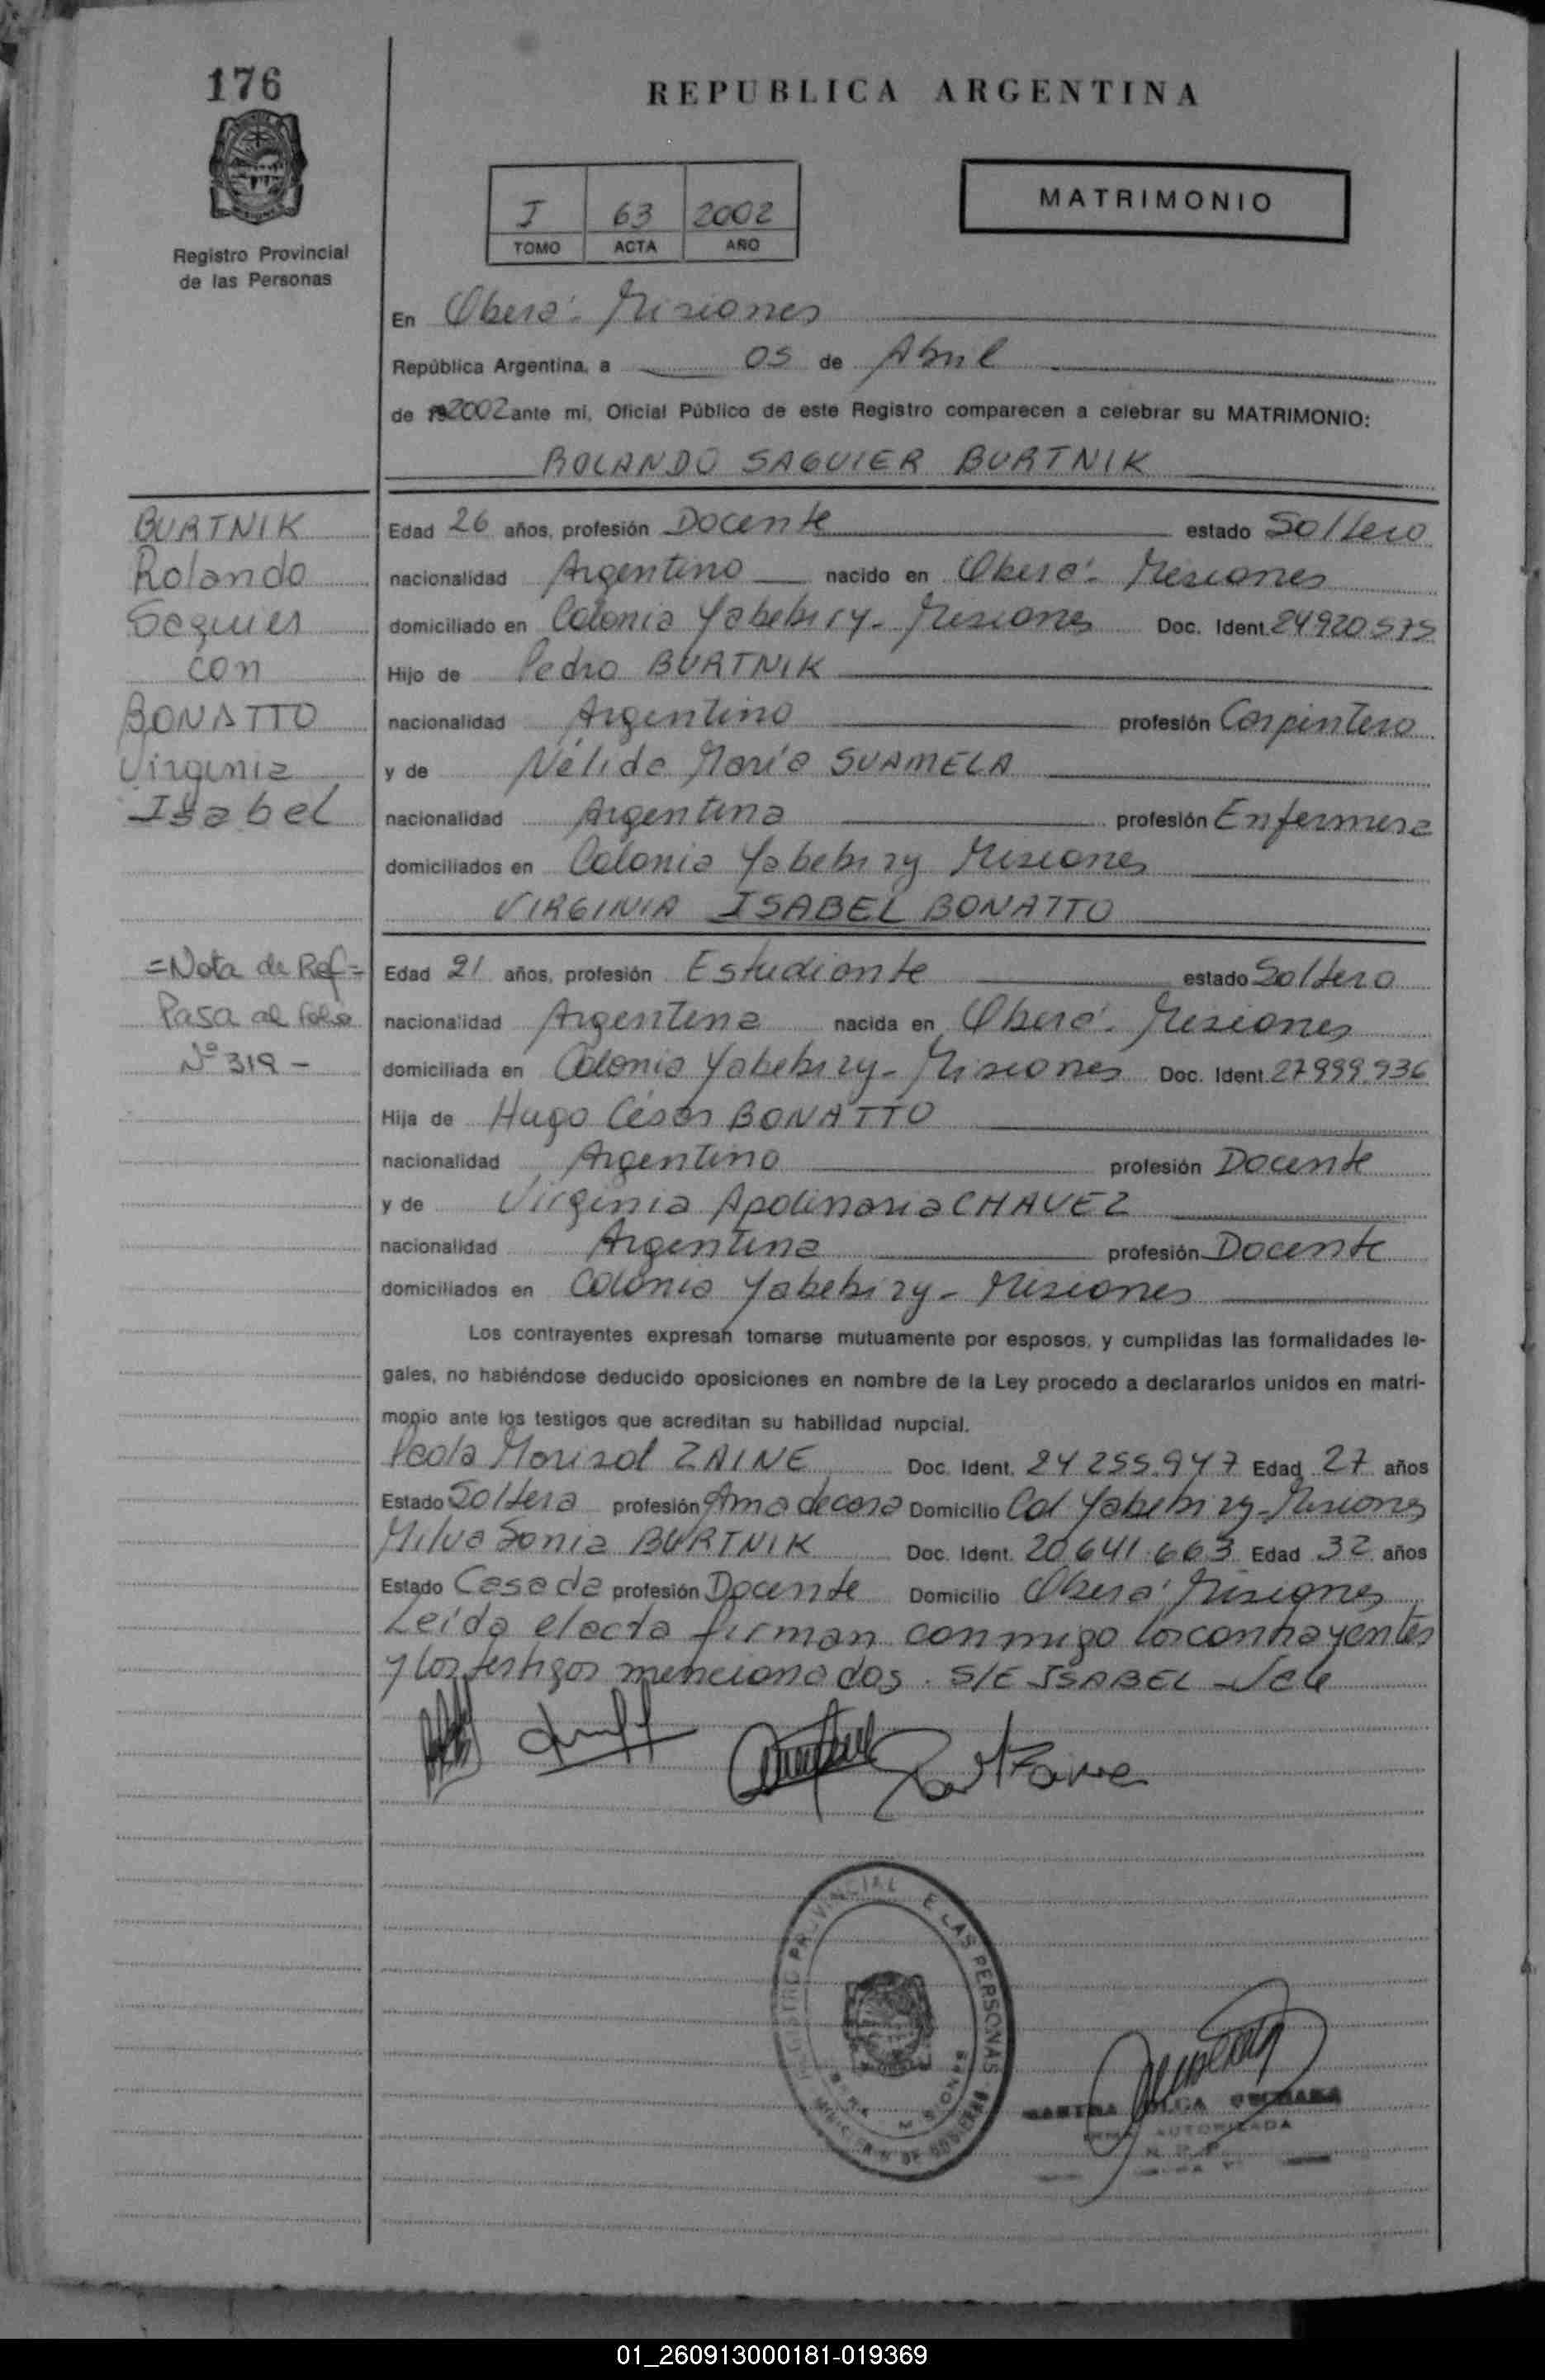 176
REPUBLICA ARGENTINA
Registro Provincial
de las Personas
I 63 2002
TOMO ACTA AÑO
MATRIMONIO
En Oberá - Misiones
República Argentina, a 05 de Abril
de 192002 ante mí, Oficial Público de este Registro comparecen a celebrar su MATRIMONIO:
ROLANDO SAGUIER BURTNIK
BURTNIK
Rolando
Saguier
con
BONATTO
Virginia
Isabel
Edad 26 años, profesión Docente estado Soltero
nacionalidad Argentino nacido en Oberá - Misiones
domiciliado en Colonia Yabebiry - Misiones Doc. Ident. 24920575
Hijo de Pedro BURTNIK
nacionalidad Argentino profesión Carpintero
y de Nélida María SUAMELA
nacionalidad Argentina profesión Enfermera
domiciliados en Colonia Yabebiry Misiones
VIRGINIA ISABEL BONATTO
=Nota de Ref=
Pasa al folio
Nº 319 -
Edad 21 años, profesión Estudiante estado Soltera
nacionalidad Argentina nacida en Oberá - Misiones
domiciliada en Colonia Yabebiry - Misiones Doc. Ident. 27999.936
Hija de Hugo César BONATTO
nacionalidad Argentino profesión Docente
y de Virginia Apolinaria CHAVEZ
nacionalidad Argentina profesión Docente
domiciliados en Colonia Yabebiry - Misiones
Los contrayentes expresan tomarse mutuamente por esposos, y cumplidas las formalidades le-
gales, no habiéndose deducido oposiciones en nombre de la Ley procedo a declararlos unidos en matri-
monio ante los testigos que acreditan su habilidad nupcial.
Paola Marisol ZAINE Doc. Ident. 24 255.947 Edad 27 años
Estado Soltera profesión Ama de casa Domicilio Col Yabebiry - Misiones
Milva Sonia BURTNIK Doc. Ident. 20.641.663 Edad 32 años
Estado Casada profesión Docente Domicilio Oberá Misiones
Leída el acta firman conmigo los contrayentes
y los testigos mencionados. S/E ISABEL Vale
PROVINCIAL DE LAS PERSONAS
MISIONES
OLGA
AUTORIZADA
01_260913000181-019369